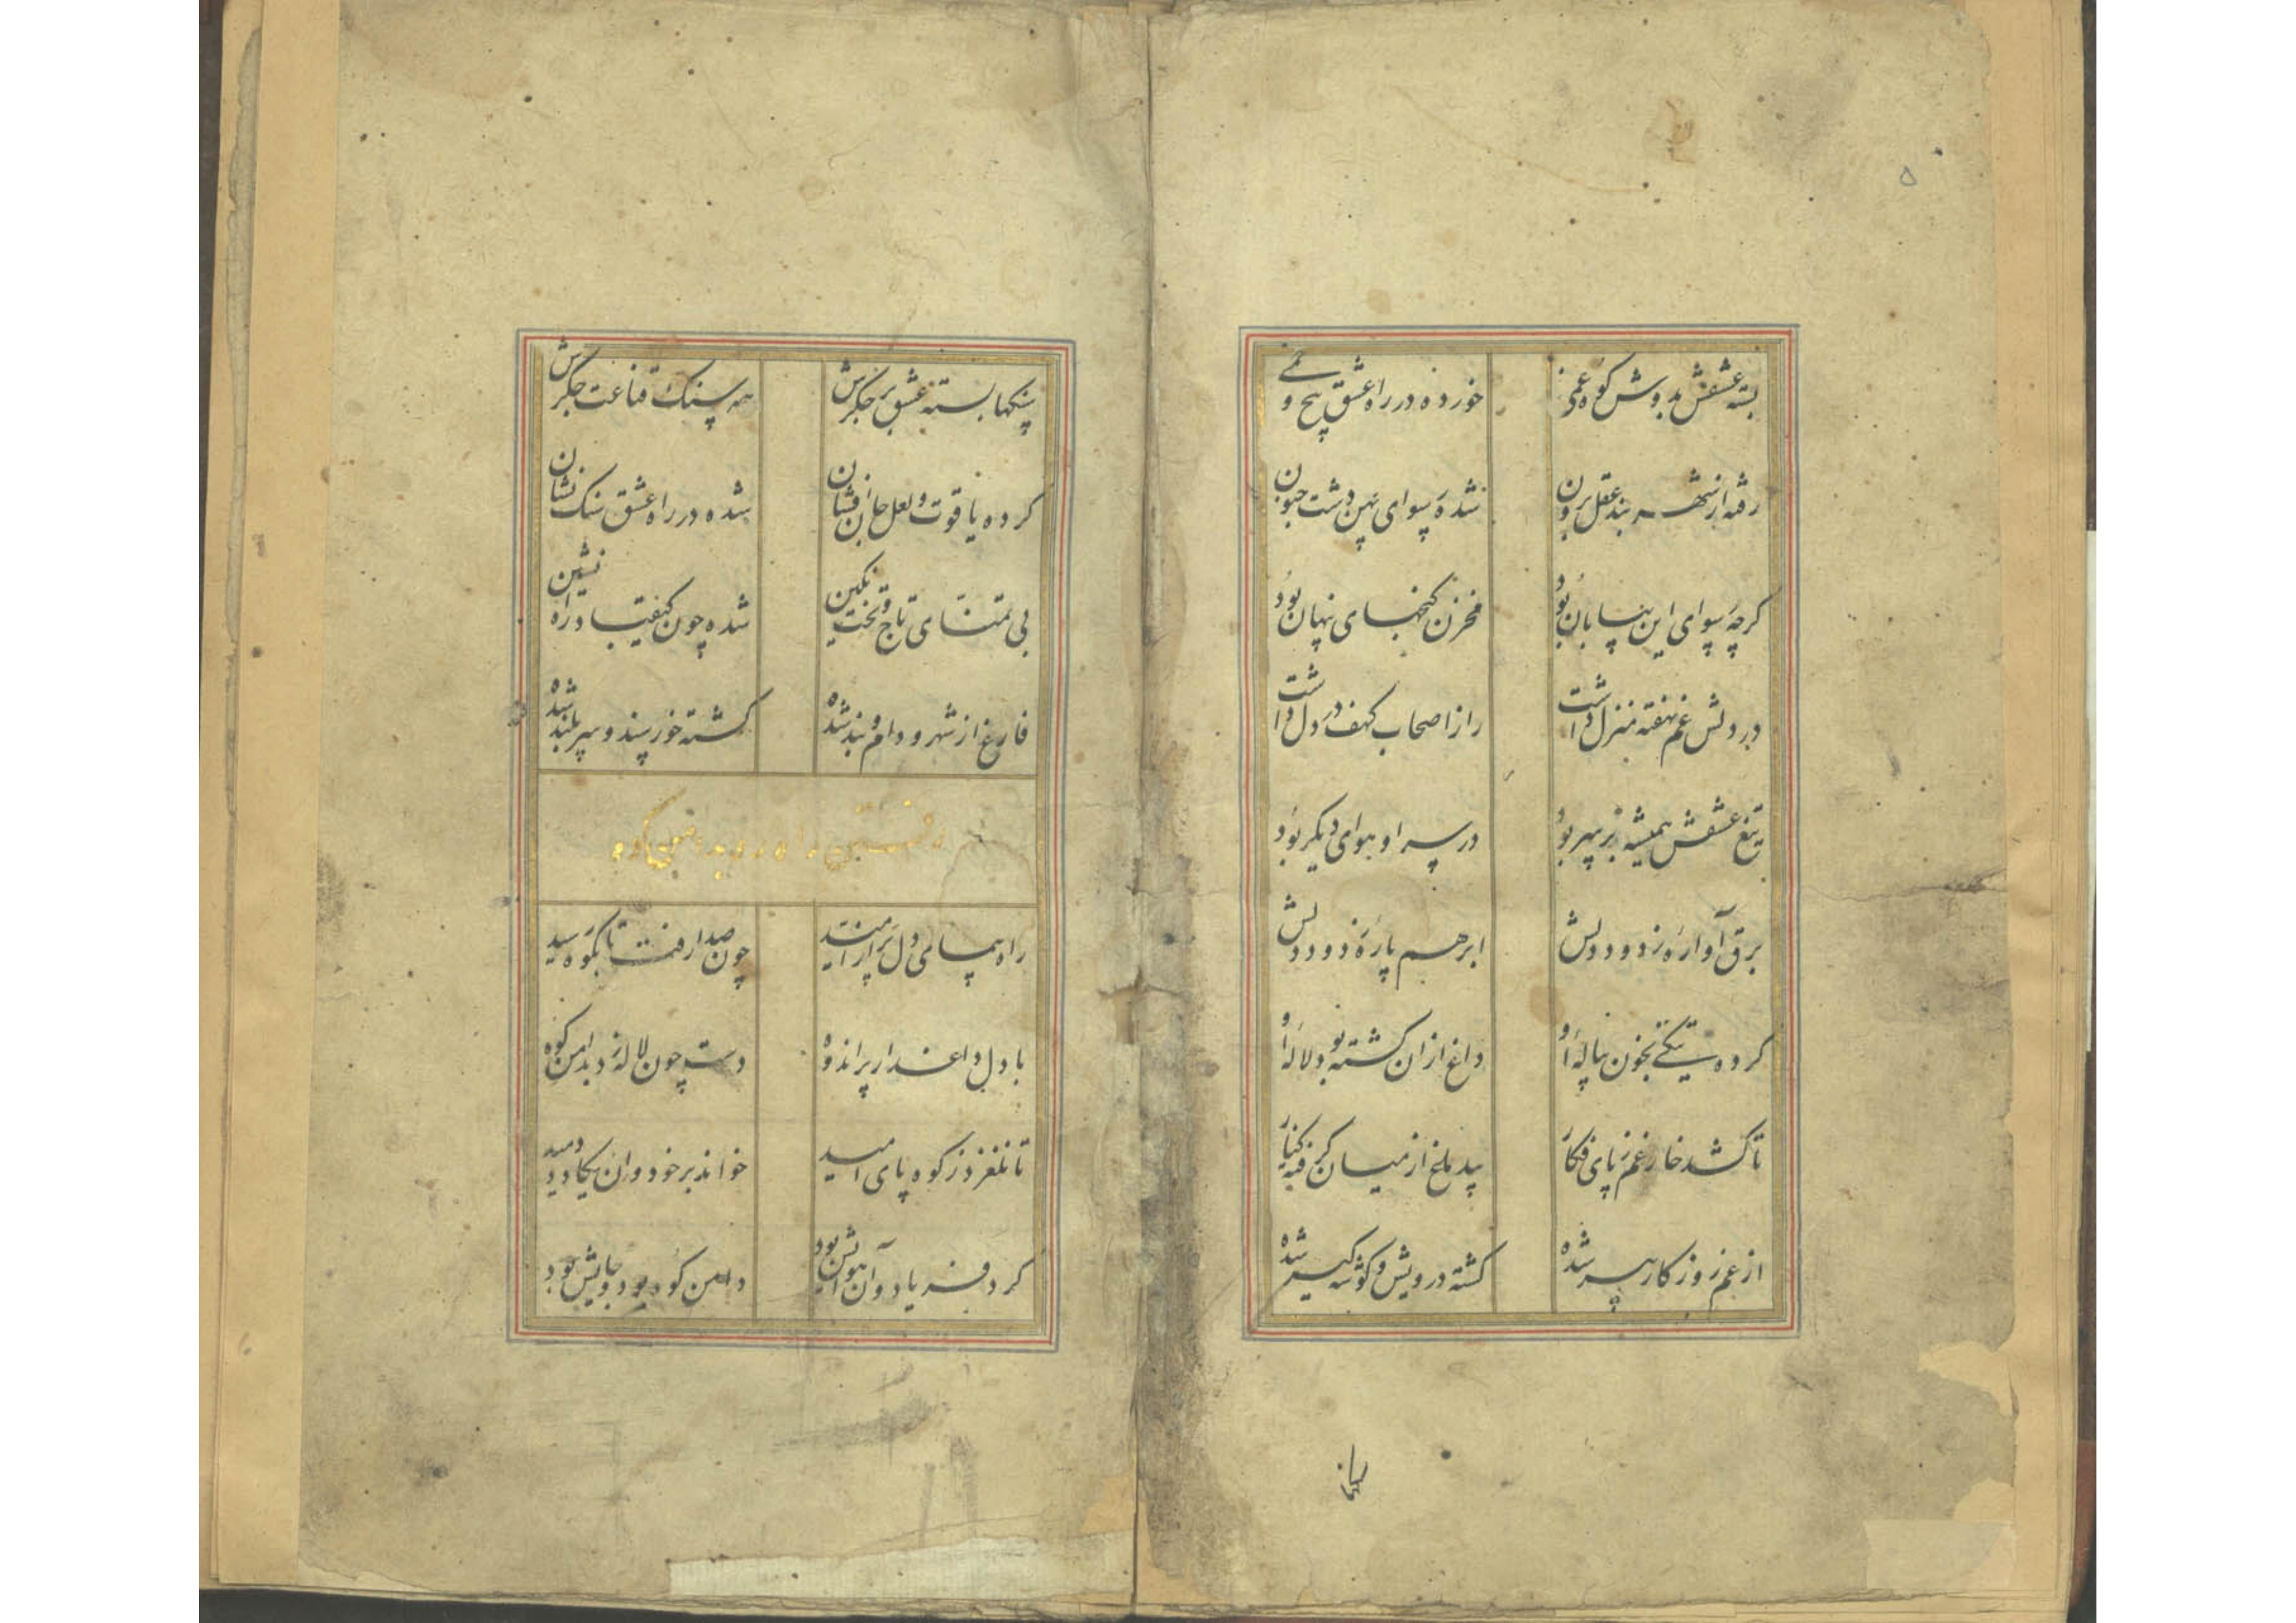 ۵
بسته عشقش بدوش کوه غمی خورده در راه عشق پیچ و خمی
رفته از شهر بند عقل برون شده رسوای پهن دشت جنون
کرچه رسوای این بیابان بود مخزن کنجهای پنهان بود
در دلش غم نهفته منزل داشت راز اصحاب کهف در دل داشت
تیغ عشقش همیشه بر سر بود در سر او هوای دیکر بود
برق آواره ز دود دلش ابر هم پاره ز دود دلش
کرده بخون پیاله او داغ ازان کشته بود لاله او
تا کشد خار غم ز پای فکار از میان کرفته کنار
از غم روزکار پیر شده کشته درویش و کوشه کیر شده
سنکها بسته عشق بر جکرش همه سنک قناعت جکرش
کرده یاقوت و لعل جان افشان شده در راه عشق سنک نشان
بی تمنای تاج و تخت و نکین شده چون کیقباد راه نشین
فارغ از شهر و دام و بند شده کشته خورسند و سربلند شده
راه پیمای دل پر از امید چون صدا رفت تا بکوه رسید
با دل داغدار پر اندوه دست چون لاله زد بدامن کوه
تا نلغزد ز کوه پای امید خواند بر خود وان یکاد دمید
کرد فریاد و آن هوایش بود دامن کوه بود و جایش بود